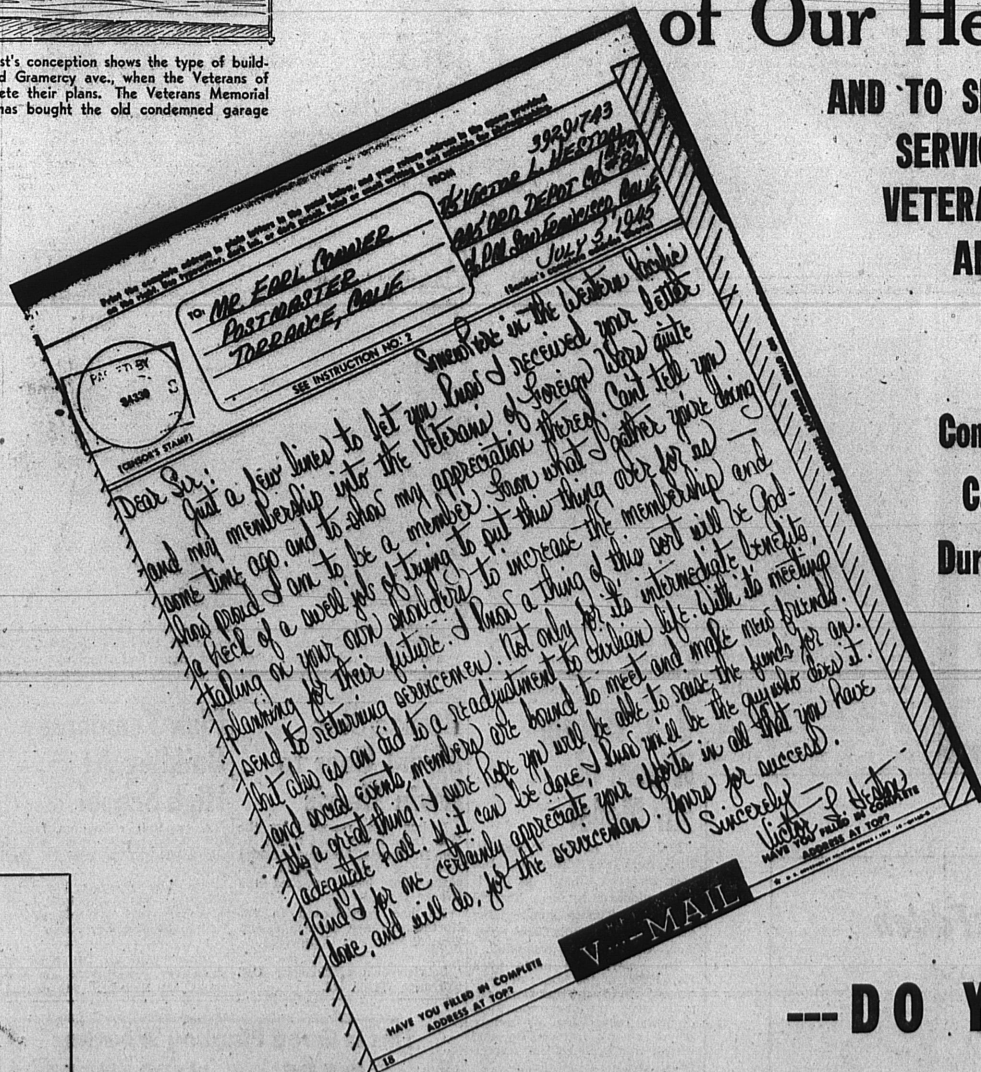 st's conception shows the type of build-
d Gramercy ave., when the Veterans of
ete their plans. The Veterans Memorial
as bought the old condemned garage
of Our He
AND TO S
SERVI
VETERA
A
Con
C
Dur
--- DO Y
Print the complete address in plain letters in the panel below, and your return address in the space provided
on the right. Use typewriter, dark ink, or dark pencil. Faint or small writing is not suitable for photographing.
FROM
39291743
VICTOR L. HESTON
ORD DEPOT CO
P.M. SAN FRANCISCO, CALIF
JULY 5, 1945
(Sender's complete address above)
TO:
MR. EARL CONNER
POSTMASTER
TORRANCE, CALIF
SEE INSTRUCTION NO. 2
BY
(CENSOR'S STAMP)
Somewhere in the Western Pacific
Dear Sir:
Just a few lines to let you know I received your letter
and my membership into the Veterans of Foreign Wars quite
some time ago, and to show my appreciation thereof. Can't tell you
how proud I am to be a member. From what I gather you're doing
a heck of a swell job of trying to put this thing over for us —
taking on your own shoulders to increase the membership and
planning for their future. I know a thing of this sort will be God-
send to returning servicemen. Not only for its intermediate benefits,
but also as an aid to a readjustment to civilian life. With its meeting
and social events, members are bound to meet and make new friends.
It's a great thing! I sure hope you will be able to raise the funds for an
adequate hall! If it can be done, I know you'll be the guy who does it.
And I for me certainly appreciate your efforts in all that you have
done, and will do, for the serviceman. Yours for success.
Sincerely —
Victor L Heston
HAVE YOU FILLED IN COMPLETE
ADDRESS AT TOP?
V···—MAIL
HAVE YOU FILLED IN COMPLETE
ADDRESS AT TOP?
18